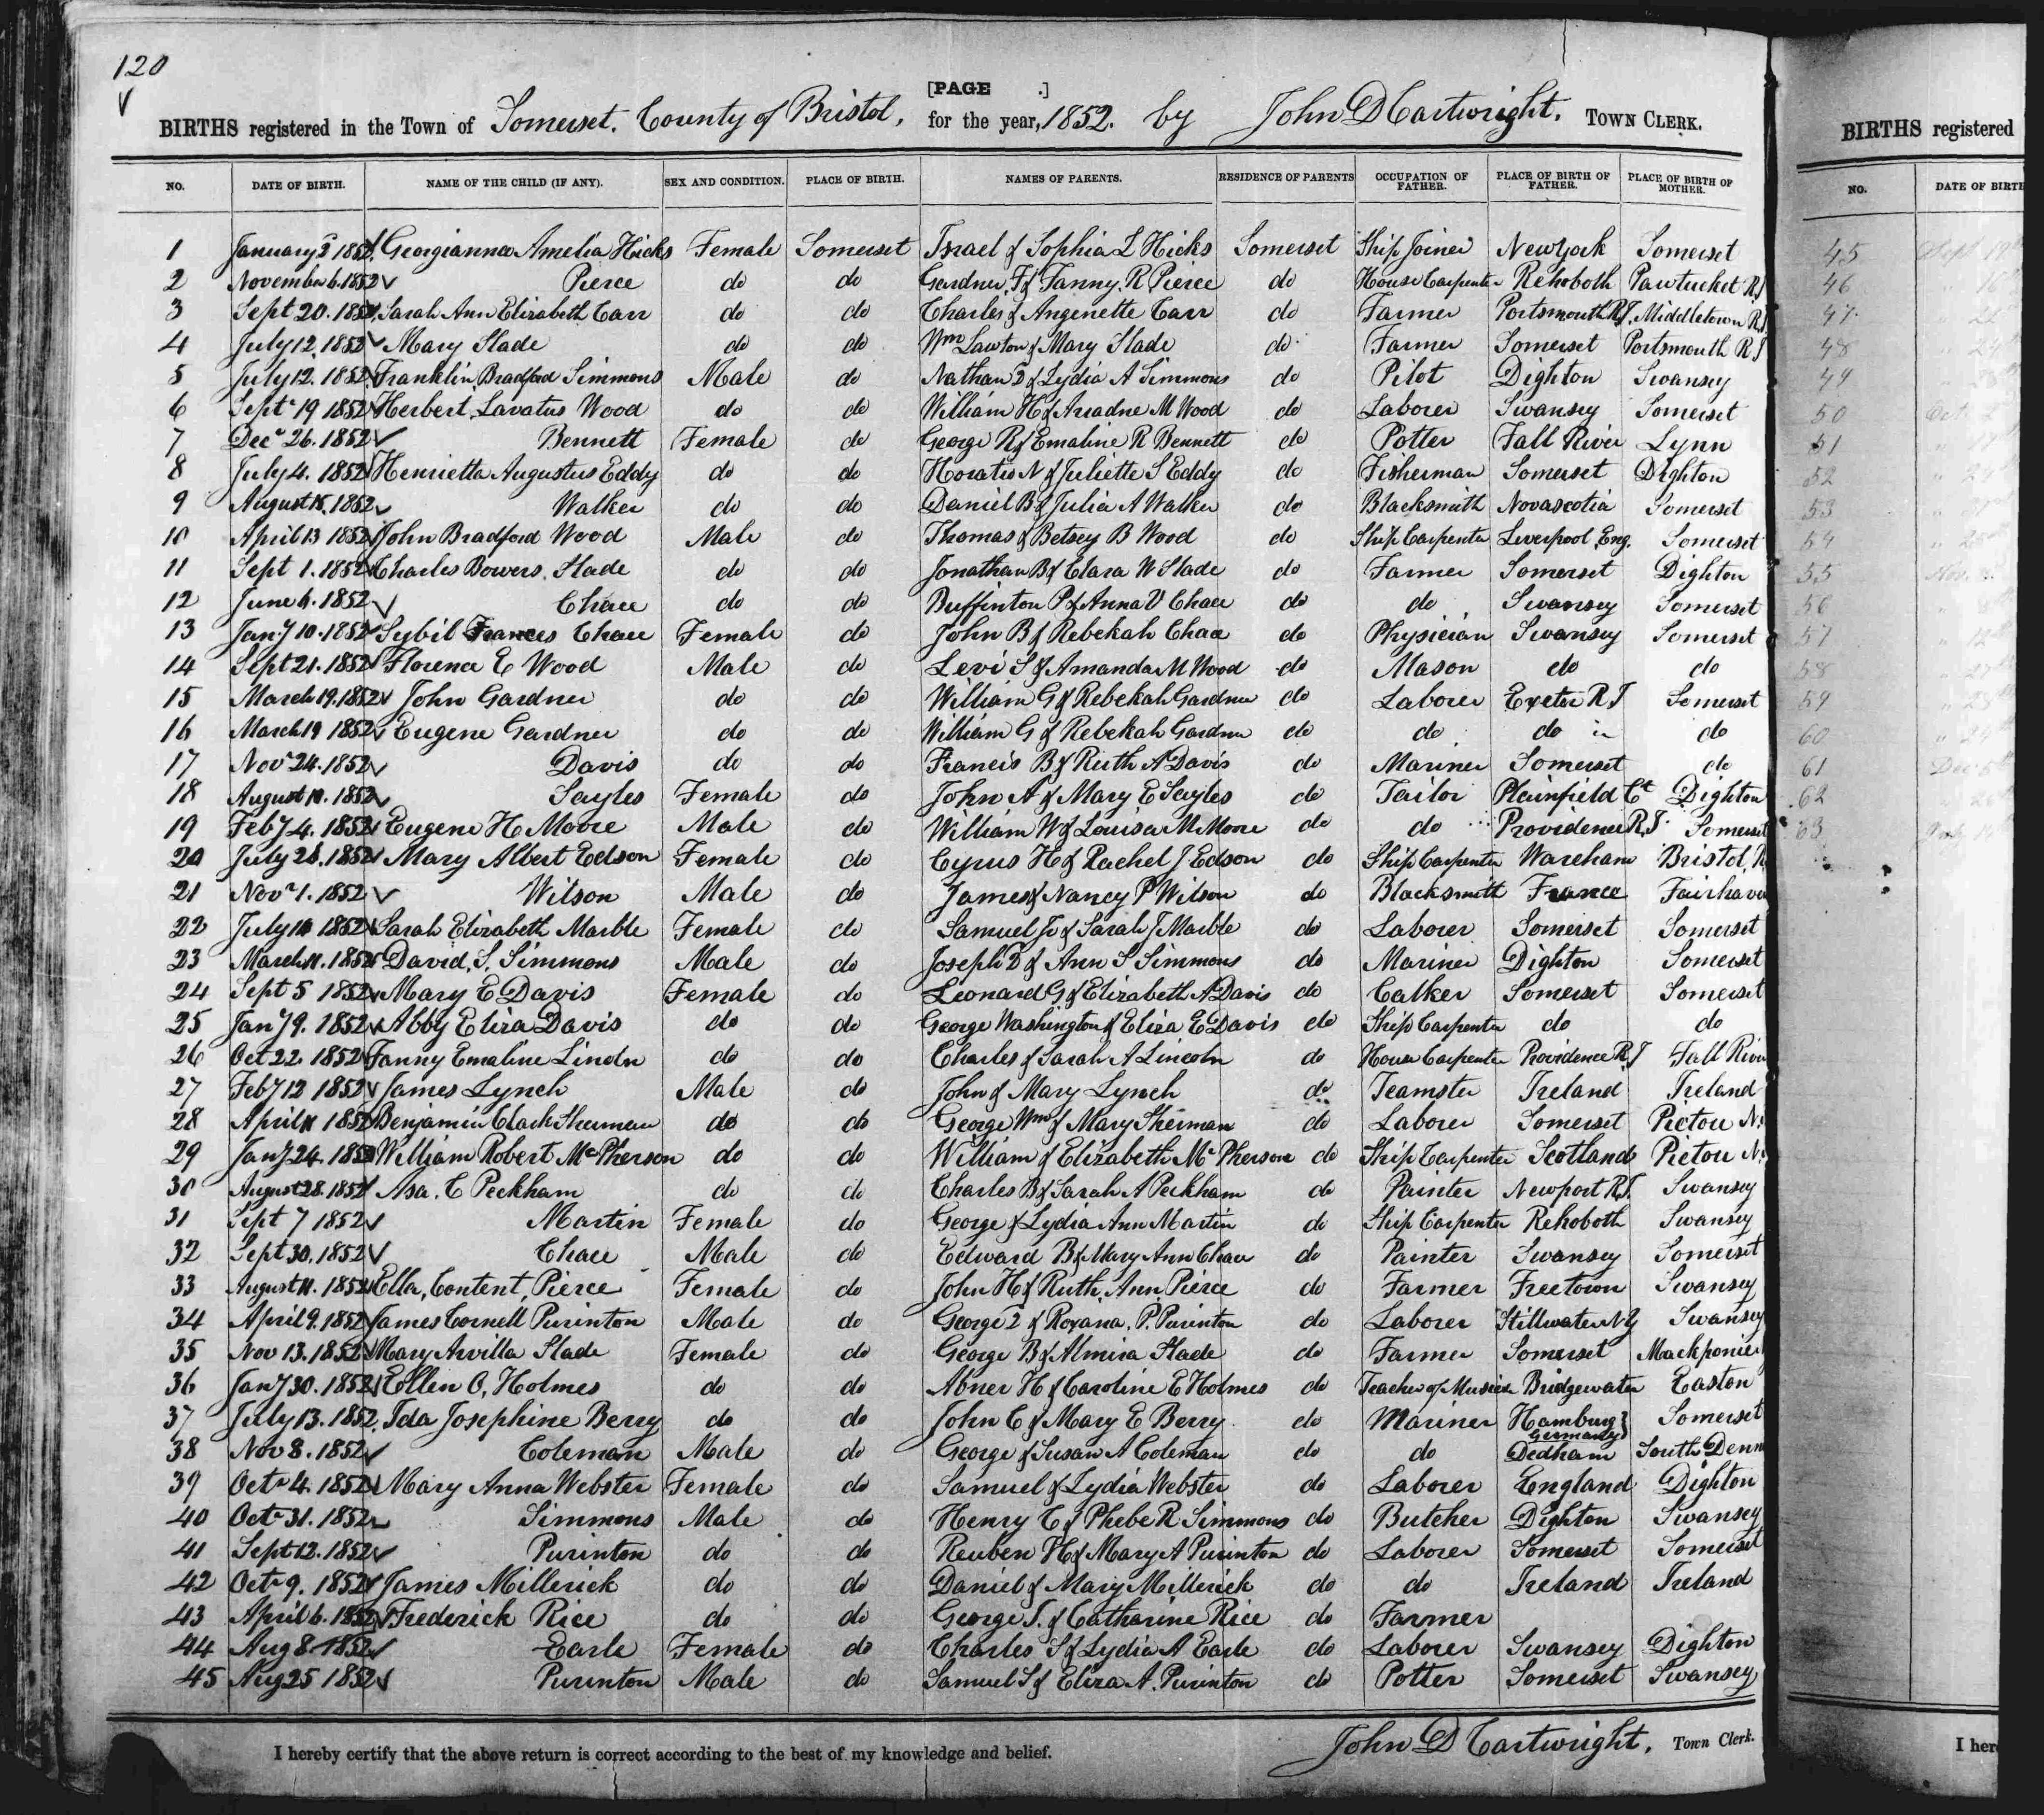 120
[PAGE .]
BIRTHS registered in the Town of Somerset. County of Bristol, for the year, 1852. by John D Cartwright. TOWN CLERK.
NO. DATE OF BIRTH. NAME OF THE CHILD (IF ANY). SEX AND CONDITION. PLACE OF BIRTH. NAMES OF PARENTS. RESIDENCE OF PARENTS OCCUPATION OF FATHER. PLACE OF BIRTH OF FATHER. PLACE OF BIRTH OF MOTHER.
1 January 2 1852 Georgianna Amelia Hicks Female Somerset Israel & Sophia L Hicks Somerset Ship Joiner New York Somerset
2 November 6. 1852 Pierce do do Gardner. F & Fanny. R Pierce do House Carpenter Rehoboth Pawtucket R I
3 Sept 20. 1852 Sarah Ann Elizabeth Carr do do Charles & Angenette Carr do Farmer Portsmouth R I. Middletown R I
4 July 12. 1852 Mary Slade do do Wm Lawton & Mary Slade do Farmer Somerset Portsmouth R I
5 July 12. 1852 Franklin Bradford Simmons Male do Nathan D & Lydia A Simmons do Pilot Dighton Swansey
6 Sept 19 1852 Herbert Lavatus Wood do do William H & Ariadne M Wood do Laborer Swansey Somerset
7 Dec 26. 1852 Bennett Female do George R & Emaline R Bennett do Potter Fall River Lynn
8 July 4. 1852 Henrietta Augustus Eddy do do Horatio N & Juliette S Eddy do Fisherman Somerset Dighton
9 August 15. 1852 Walker do do Daniel B & Julia A Walker do Blacksmith Novascotia Somerset
10 April 13 1852 John Bradford Wood Male do Thomas & Betsey B Wood do Ship Carpenter Liverpool Eng. Somerset
11 Sept 1. 1852 Charles Bowers. Slade do do Jonathan B & Clara W Slade do Farmer Somerset Dighton
12 June 6. 1852 Chace do do Buffinton P & Anna V Chace do do Swansey Somerset
13 Jany 10. 1852 Sybil Frances Chace Female do John B & Rebekah Chace do Physician Swansey Somerset
14 Sept 21. 1852 Florence E Wood Male do Levi S & Amanda M Wood do Mason do do
15 March 19. 1852 John Gardner do do William G & Rebekah Gardner do Laborer Exeter R I Somerset
16 March 19 1852 Eugene Gardner do do William G & Rebekah Gardner do do do do
17 Nov 24. 1852 Davis do do Francis B & Ruth A Davis do Mariner Somerset do
18 August 10. 1852 Sayles Female do John A & Mary E Sayles do Tailor Plainfield Ct Dighton
19 Feby 4. 1852 Eugene H Moore Male do William W & Louisa M Moore do do Providence R I. Somerset
20 July 28. 1852 Mary Albert Edson Female do Cyrus H & Rachel J Edson do Ship Carpenter Wareham Bristol, R
21 Nov 1. 1852 Wilson Male do James & Nancy P Wilson do Blacksmith France Fairhave
22 July 10 1852 Sarah Elizabeth Marble Female do Samuel Jr & Sarah J Marble do Laborer Somerset Somerset
23 March 11. 1852 David. S. Simmons Male do Joseph D & Ann S Simmons do Mariner Dighton Somerset
24 Sept 5 1852 Mary E Davis Female do Leonard G & Elizabeth A Davis do Calker Somerset Somerset
25 Jany 9. 1852 Abby Eliza Davis do do George Washington & Eliza E Davis do Ship Carpenter do do
26 Oct 22. 1852 Fanny Emaline Lincoln do do Charles & Sarah A Lincoln do House Carpenter Providence R I Fall Rive
27 Feby 12 1852 James Lynch Male do John & Mary Lynch do Teamster Ireland Ireland
28 April 11 1852 Benjamin Clark Sherman do do George Wm & Mary Sherman do Laborer Somerset Pictou N.
29 Jany 24. 1852 William Robert McPherson do do William & Elizabeth McPherson do Ship Carpenter Scotland Pictou N.
30 August 28. 1852 Asa. C Peckham do do Charles B & Sarah A Peckham do Painter Newport R.I. Swansey
31 Sept 7 1852 Martin Female do George & Lydia Ann Martin do Ship Carpenter Rehoboth Swansey
32 Sept 30. 1852 Chace Male do Edward B & Mary Ann Chace do Painter Swansey Somerset
33 August 11. 1852 Ella, Content, Pierce Female do John H & Ruth. Ann. Pierce do Farmer Freetown Swansey
34 April 9. 1852 James Cornell Purinton Male do George & Roxana. P. Purinton do Laborer Stillwater N Y Swansey
35 Nov 13. 1852 Mary Arvilla Slade Female do George B & Almira Slade do Farmer Somerset
36 Jany 30. 1852 Ellen O, Holmes do do Abner H & Caroline E Holmes do Teacher of Musick Bridgewater Easton
37 July 13. 1852. Ida Josephine Berry do do John C & Mary E Berry. do Mariner Hamburg Germany Somerset
38 Nov 8. 1852 Coleman Male do George & Susan A Coleman do do Dedham South Denn
39 Oct 4. 1852 Mary Anna Webster Female do Samuel & Lydia Webster do Laborer England Dighton
40 Oct 31. 1852 Simmons Male do Henry C & Phebe R Simmons do Butcher Dighton Swansey
41 Sept 12. 1852 Purinton do do Reuben H & Mary A Purinton do Laborer Somerset Somerset
42 Oct 9. 1852 James Millerick do do Daniel & Mary Millerick do do Ireland Ireland
43 April 6. 1852 Frederick Rice do do George S. & Catharine Rice do Farmer
44 Aug 8 1852 Earle Female do Charles S & Lydia A Earle do Laborer Swansey Dighton
45 Aug 25 1852 Purinton Male do Samuel S & Eliza A. Purinton do Potter Somerset Swansey
I hereby certify that the above return is correct according to the best of my knowledge and belief.
John D Cartwright. Town Clerk.
BIRTHS registered
NO. DATE OF BIRTH
45 Sept 19
46
47
48
49
50 Oct
51
52
53
54
55 Nov.
56
57
58
59
60
61 Dec 5th
62
63
I her